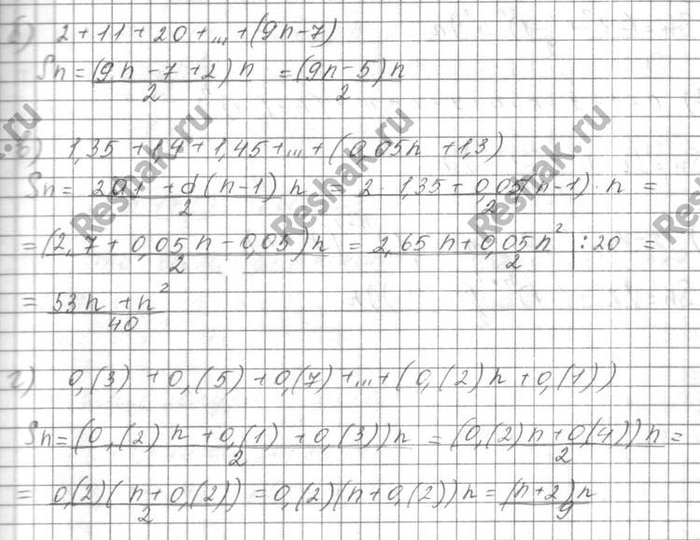 б) 2 + 11 + 20 + ... + (9n - 7)
Sn = (9n - 7 + 2) n / 2 = (9n - 5) n / 2
в) 1,35 + 1,4 + 1,45 + ... + (0,05n + 1,3)
Sn = 2a₁ + d(n - 1) n / 2 = 2 · 1,35 + 0,05(n - 1) · n / 2 =
= (2,7 + 0,05n - 0,05) n / 2 = 2,65n + 0,05n² / 2 | : 20 =
= 53n + n² / 40
г) 0,(3) + 0,(5) + 0,(7) + ... + (0,(2)n + 0,(1))
Sn = (0,(2)n + 0,(1) + 0,(3)) n / 2 = (0,(2)n + 0,(4)) n / 2 =
= 0,(2)(n + 0,(2)) / 2 = 0,(2)(n + 0,(2)) n = (n + 2) n / 9
Reshak.ru
Reshak.ru
Reshak.ru